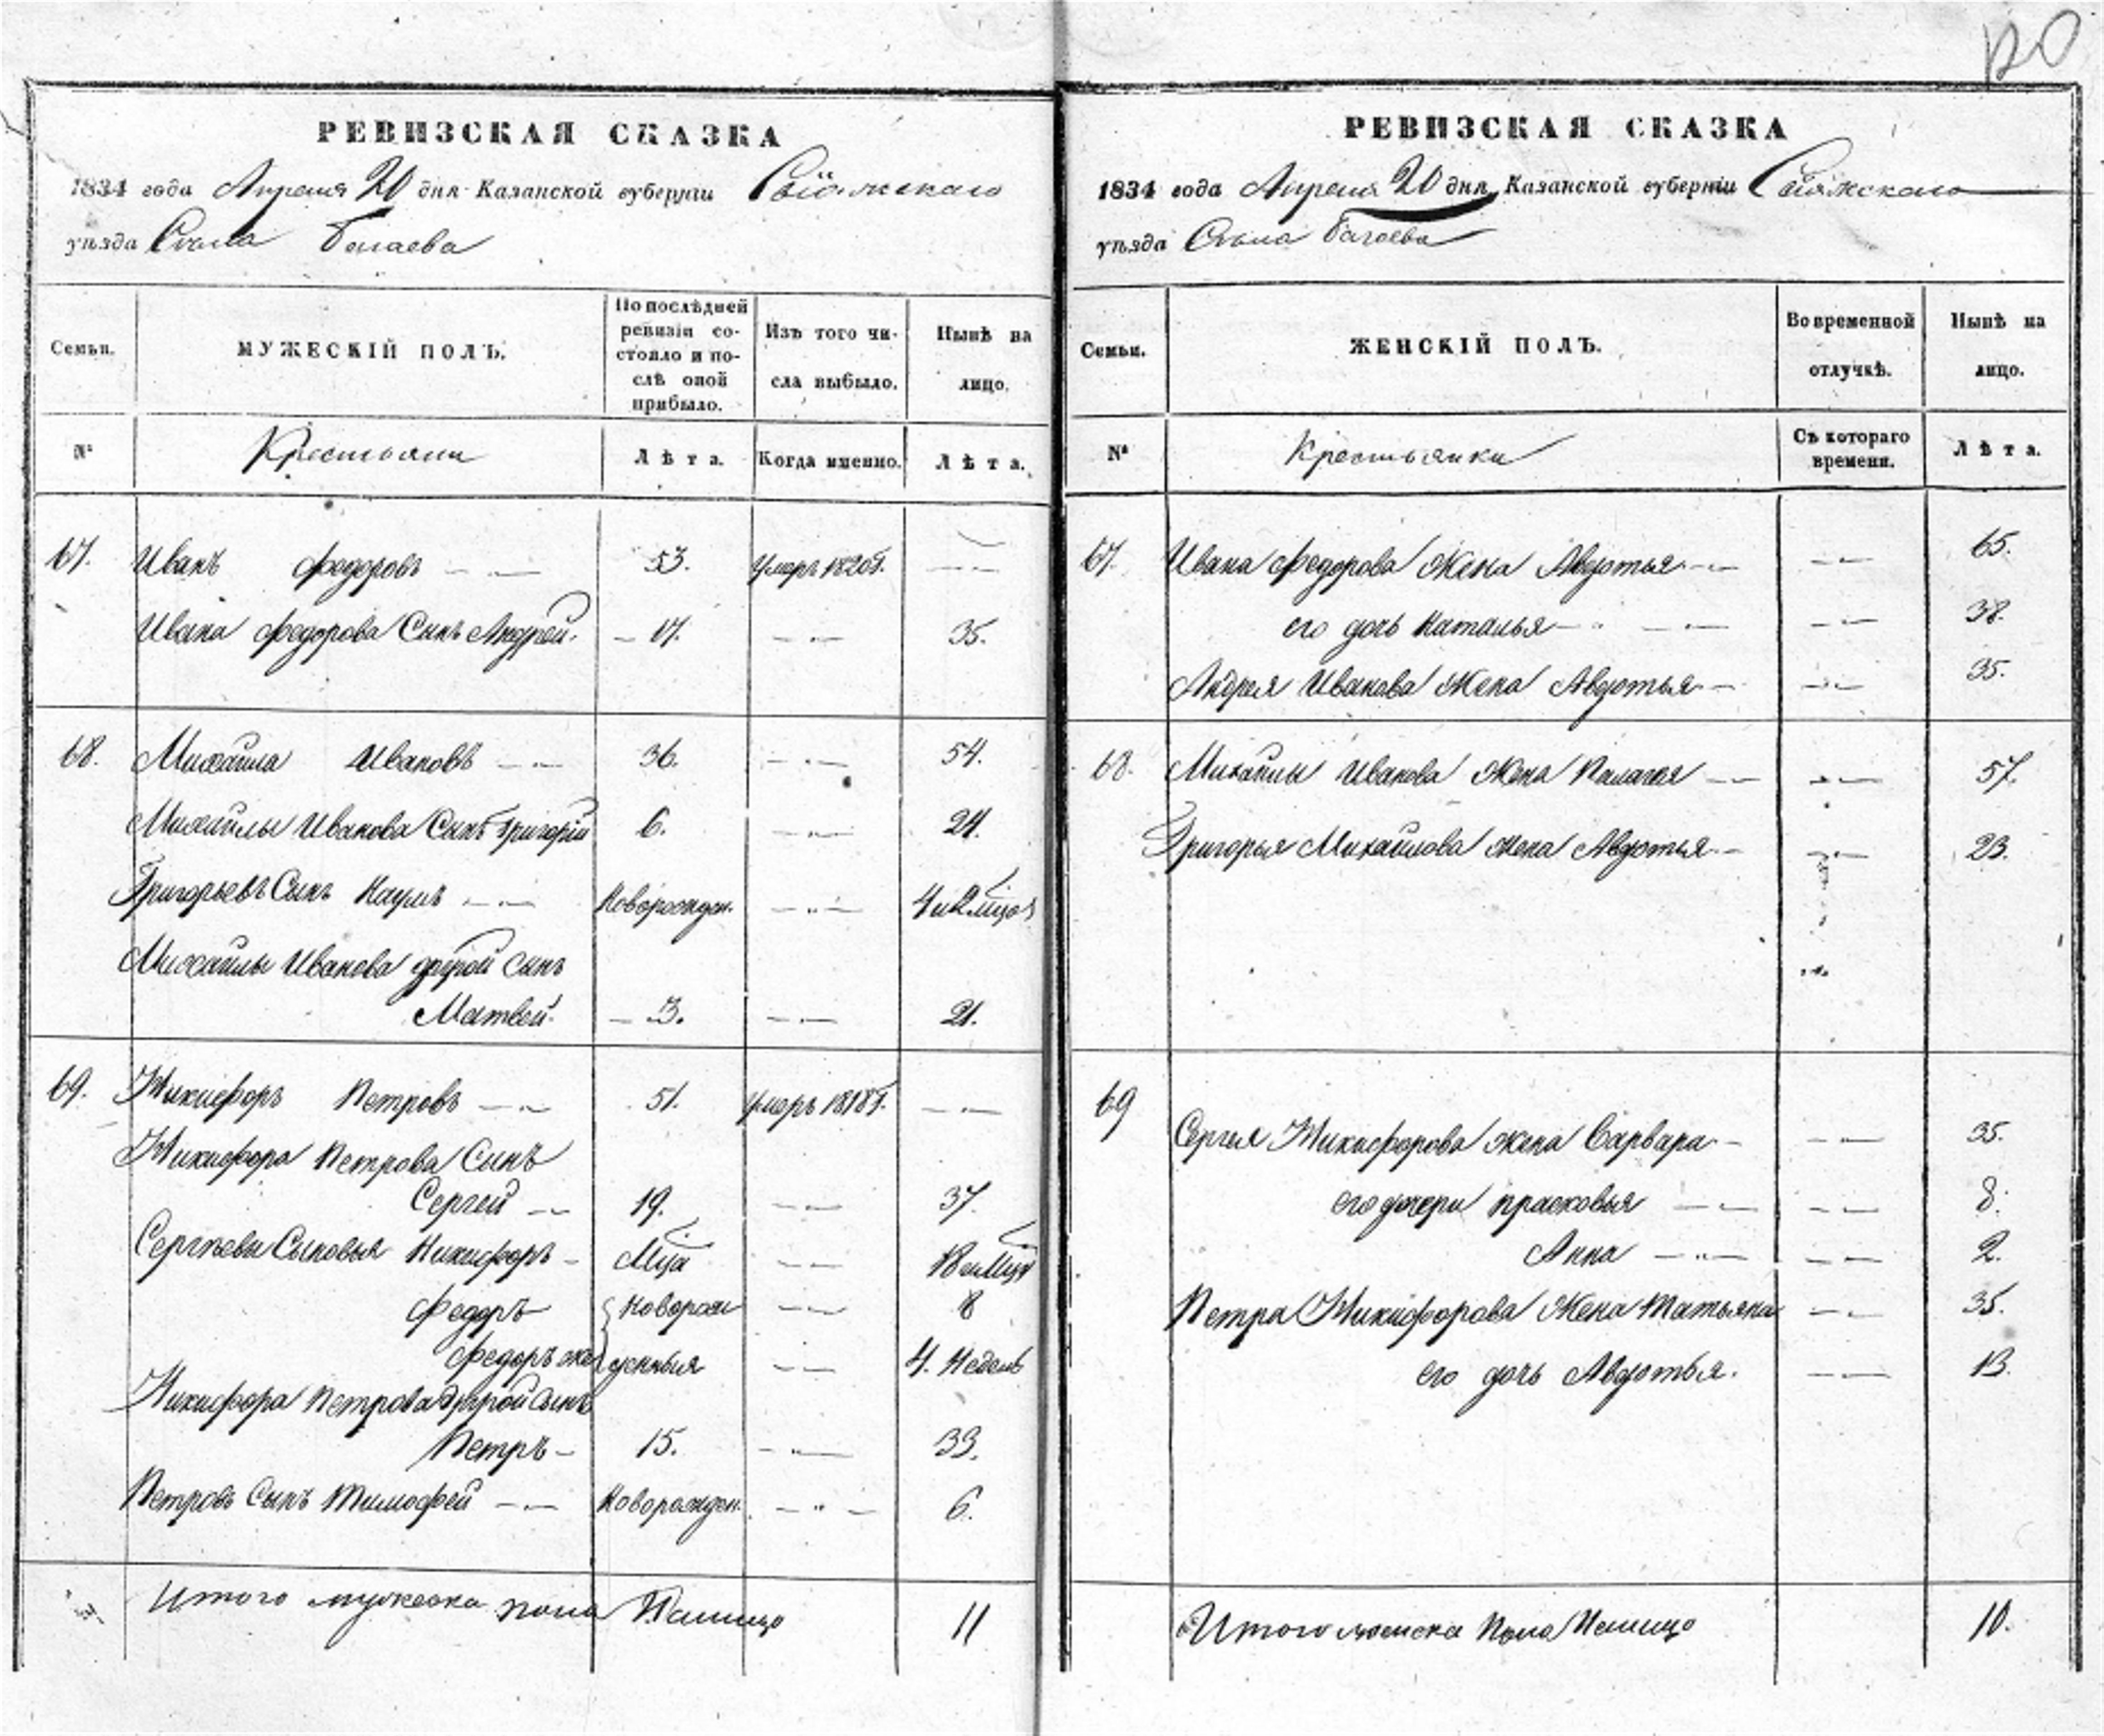 120
РЕВИЗСКАЯ СКАЗКА
1834 года Апреля 20 дня Казанской губернiи Свiяжскаго
уѣзда Села
МУЖЕСКIЙ ПОЛЪ.
Семьи.
По послѣдней ревизiи со-
стояло и по-
слѣ оной
прибыло.
Изъ того чи-
сла выбыло.
Нынѣ на
лицо.
№ Крестьяни Лѣта. Когда именно. Лѣта.
67. Иванъ Федоровъ 53. Умеръ 1820г.
Ивана Федорова Сынъ Андрей. 17. 35.
68. Михайла Ивановъ 36. 54.
Михайлы Иванова Сынъ Григорiй 6. 24.
Григорьевъ Сынъ Наумъ Новорожден.
Михайлы Иванова другой сынъ
Матвей. 3. 21.
69. Никифоръ Петровъ 51. Умеръ 1818г.
Никифора Петрова Сынъ
Сергей 19. 37.
Сергѣевы Сыновья Никифоръ Мца
Федоръ Новорож 8
Федоръ же денныя 4. Недель
Никифора Петрова другой сынъ
Петръ 15. 33.
Петровъ Сынъ Тимофей Новорожден. 6.
Итого мужеска пола Налицо 11
РЕВИЗСКАЯ СКАЗКА
1834 года Апреля 20 дня Казанской губернiи Свiяжскаго
уѣзда Села
Семьи.
ЖЕНСКIЙ ПОЛЪ.
Во временной
отлучкѣ.
Нынѣ на
лицо.
№ Крестьянки Съ котораго
времени. Лѣта.
67. Ивана Федорова Жена Авдотья 65.
его дочь Наталья 38.
Андрея Иванова Жена Авдотья 35.
68. Михайлы Иванова Жена Палагея 57.
Григорья Михайлова жена Авдотья 23.
69 Сергея Никифорова жена Варвара 35.
его дочери прасковья 8.
Анна 2.
Петра Никифорова Жена Татьяна 35.
его дочь Авдотья. 13.
Итого женска Пола Налицо 10.